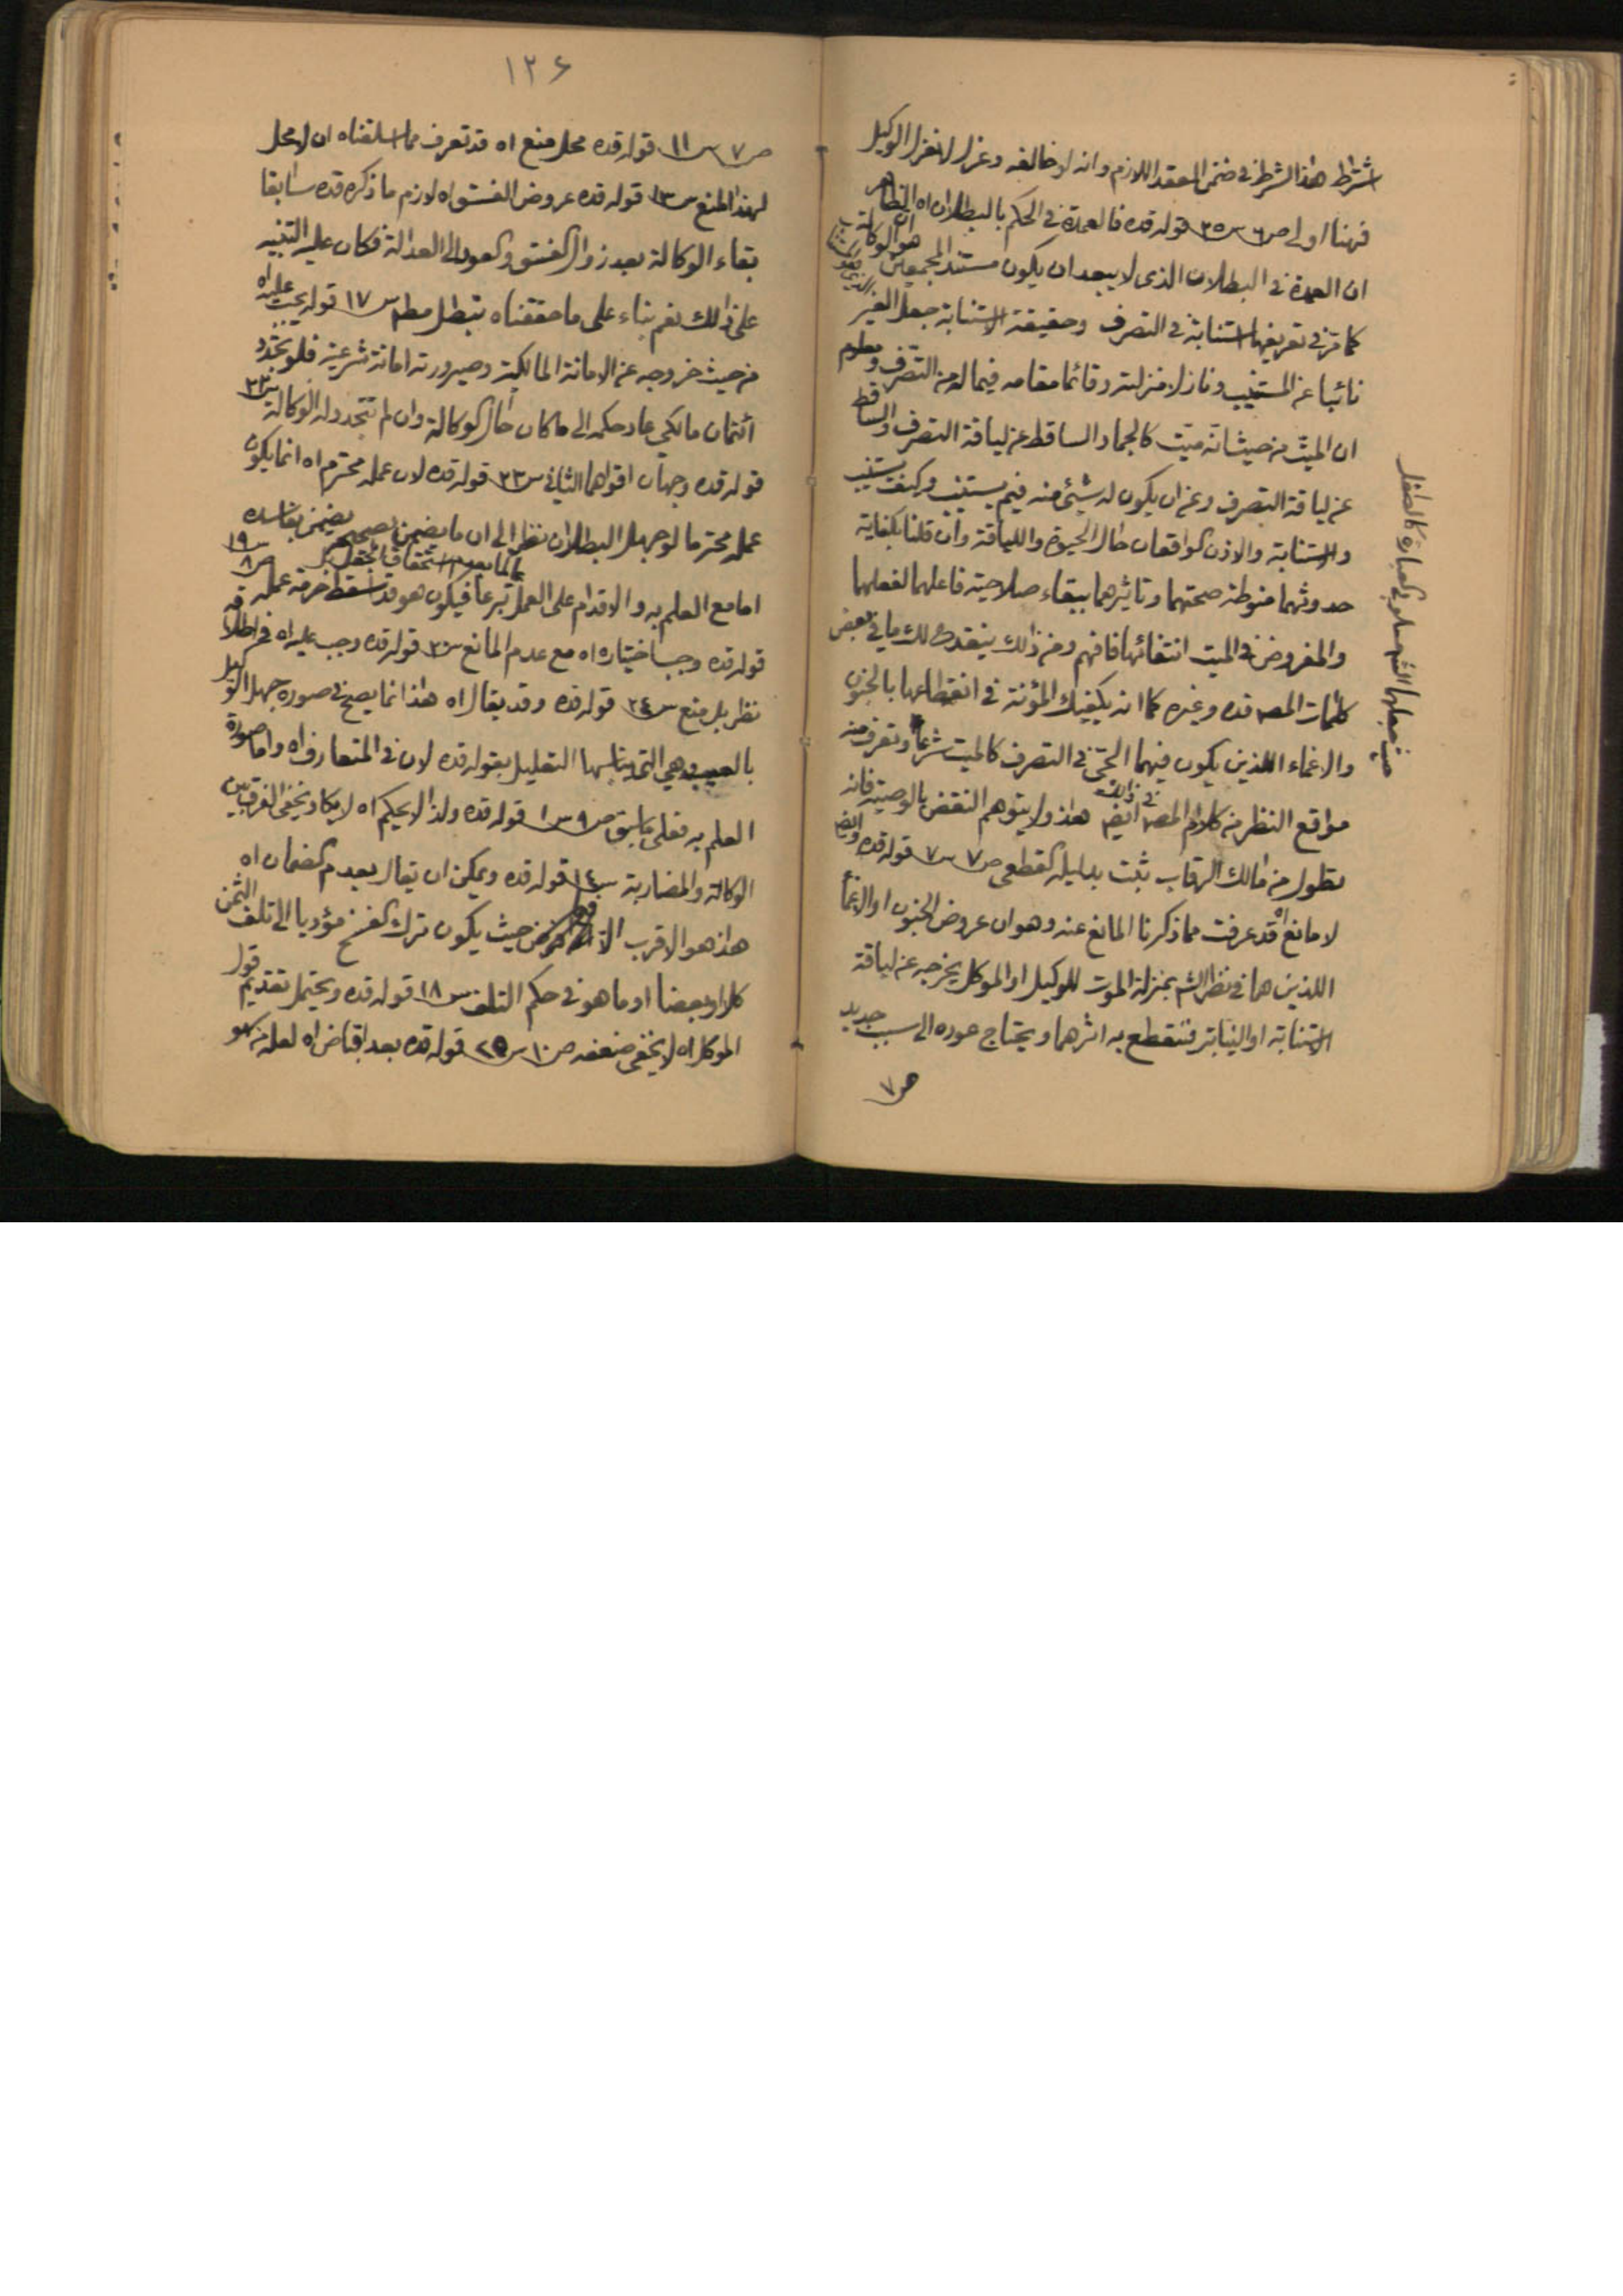 اشترط هذا الشرط فى ضمن العقد اللازم وانه لو خالفه وعزل لا نعزل الوكيل
فهنا اولى ص٦ س٢٥ قوله قده فالعمدة فى الحكم بالبطلان اه الظاهر
ان العمدة فى البطلان الذى لا يبعد ان يكون مستند المجمعين هو ان الوكالة
كما مر فى تعريفها استنابة فى التصرف وحقيقة الاستنابة جعل الغير
نائبا عن المستنيب ونازلا منزلته وقائما مقامه فيما له من التصرف ومعلوم
ان الميت من حيث انه ميت كالجماد الساقط عن لياقة التصرف والساقط
عن لياقة التصرف وعن ان يكون له شيئ منه فيم يستنيب وكيف يستنيب
والاستنابة والاذن الواقعان حال الحيوة واللياقة وان قلنا بكفاية
حدوثهما منوطة صحتهما وتاثيرهما ببقاء صلاحية فاعلهما لفعلهما
والمفروض فى الميت انتفائها فافهم ومن ذلك ينقدح لك ما فى بعض
كلمات المصـ قده وغيره كما انه يكفيك المؤنة فى انقطاعها بالجنون
والاغماء اللذين يكون فيهما الحى فى التصرف كالميت شرعا وتعرف منه
مواقع النظر من كلام المصـ فى ذلك ايضـ هذا ولا يتوهم النقض بالوصية فانه
تطول من مالك الرقاب ثبت بدليله القطعى ص٧ س٧ قوله قده وايضـ
لا مانع اه قد عرفت مما ذكرنا المانع عنه وهو ان عروض الجنون او الاغماء
اللذين هما فى نظر الشـ بمنزلة الموت للوكيل او الموكل يخرجه عن لياقة
الاستنابة او النيابة فتنقطع به اثرهما ويحتاج عوده الى سبب جديد
ص٧
حيث جعلهما الشـ مسلوبى العبارة كالطفل
١٢٦
ص٧ س١١ قوله قده محل منع اه قد تعرف مما اسلفناه ان لا محل
لهذا المنع س١٣ قوله قده عروض الفسق اه لازم ما ذكره قده سابقا
بقاء الوكالة بعد زوال الفسق والعود الى العدالة فكان عليه التنبيه
على ذلك نعم بناء على ما حققناه تبطل مطـ س١٧ قوله يجب عليه اه
من حيث خروجه عن الامانة المالكية وصيرورته امانة شرعية فلو تجدد
ائتمان مالكى عاد حكمه الى ما كان حال الوكالة وان لم تتجدد له الوكالة س٢٣
قوله قده وجهان اقواهما الثانى س٢٣ قوله قده لان عمله محترم اه انما يكون
عمله محترما لو جهل البطلان نظرا الى ان ما يضمن بصحيحه يضمن بفاسده
اما مع العلم به والاقدام على العمل عالما بعدم استحقاق الجعل تبرعا فيكون هو قد اسقط حرمة عمله ص٨ س١٩
قوله قده وجب اختياره اه مع عدم المانع س٢٠ قوله قده وجب عليه اه فى اطلاقه
نظر بل منع س٢٤ قوله قده وقد يقال اه هذا انما يصح فى صورة جهل الوكيل
بالعيب وهى التى يناسبها التعليل بقوله قده لان فى المتعارف اه واما صورة
العلم به فعلى ما سبق ص٩ س١ قوله قده ولذا لا يحكم اه لا يكاد يخفى الفرق بين
الوكالة والمضاربة س١٤ قوله قده ويمكن ان يقال بعدم الضمان اه
هذا هو الاقرب الا حيث يكون ترك الفسخ مؤديا الى تلف الثمن
كلا او بعضا او ما هو فى حكم التلف س١٨ قوله قده ويحتمل تقديم قول
الموكل اه لا يخفى ضعفه ص١٠ س٢٥ قوله قده بعد اقباض اه لعله من سهو